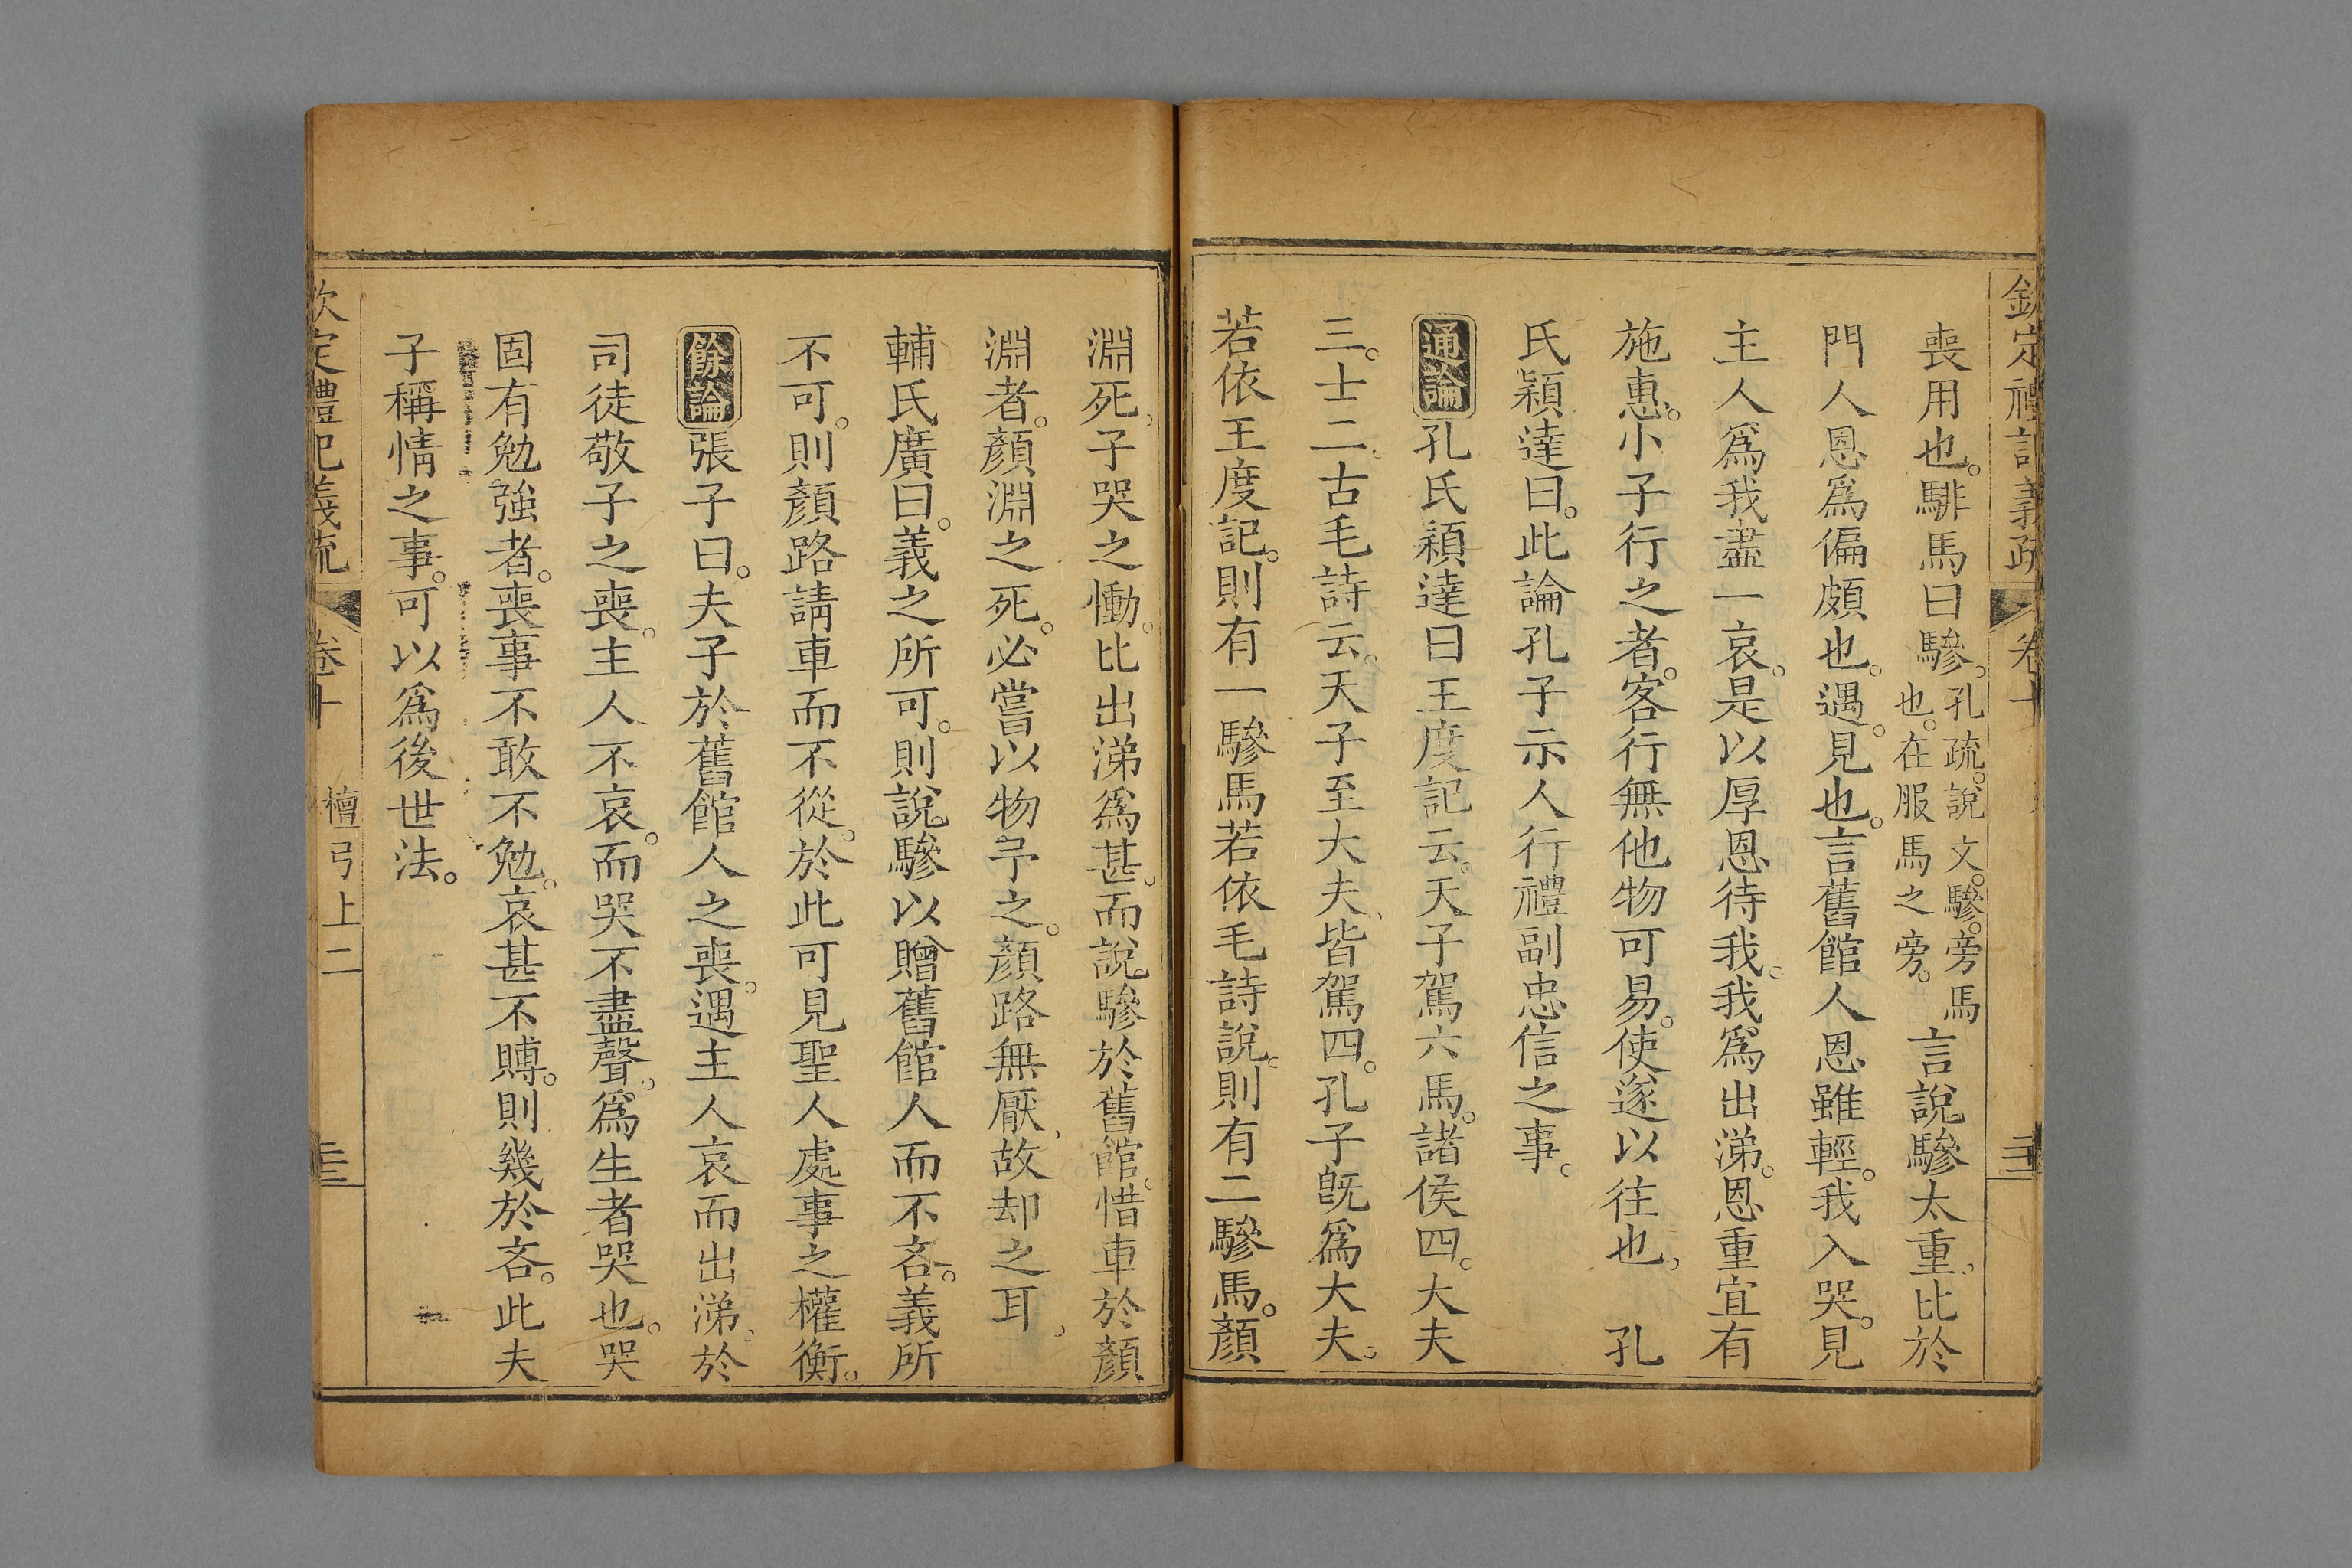 欽定禮記義疏 卷十
喪用也。騑馬曰驂。孔疏。說文。驂。旁馬也。在服馬之旁。言說驂太重、比於
門人恩爲偏頗也。遇。見也。言舊館人恩雖輕。我入哭。見
主人爲我盡一哀。是以厚恩待我。我爲出涕。恩重宜有
施惠。小子行之者。客行無他物可易。使遂以往也。 孔
氏穎達曰。此論孔子示人行禮副忠信之事。
通論 孔氏穎達曰王度記云。天子駕六馬。諸侯四。大夫
三。士二。古毛詩云。天子至大夫、皆駕四。孔子旣爲大夫。
若依王度記。則有一驂馬若依毛詩說。則有二驂馬。顏
淵死、子哭之慟。比出涕爲甚。而說驂於舊館。惜車於顏
淵者。顏淵之死。必嘗以物予之。顏路無厭、故却之耳、
輔氏廣曰。義之所可。則說驂以贈舊館人而不吝。義所
不可。則顏路請車而不從。於此可見聖人處事之權衡。
餘論 張子曰。夫子於舊館人之喪。遇主人哀而出涕、於
司徒敬子之喪。主人不哀。而哭不盡聲、爲生者哭也。哭
固有勉強者。喪事不敢不勉。哀甚不賻。則幾於吝。此夫
子稱情之事。可以爲後世法。
欽定禮記義疏 卷十 檀弓上二